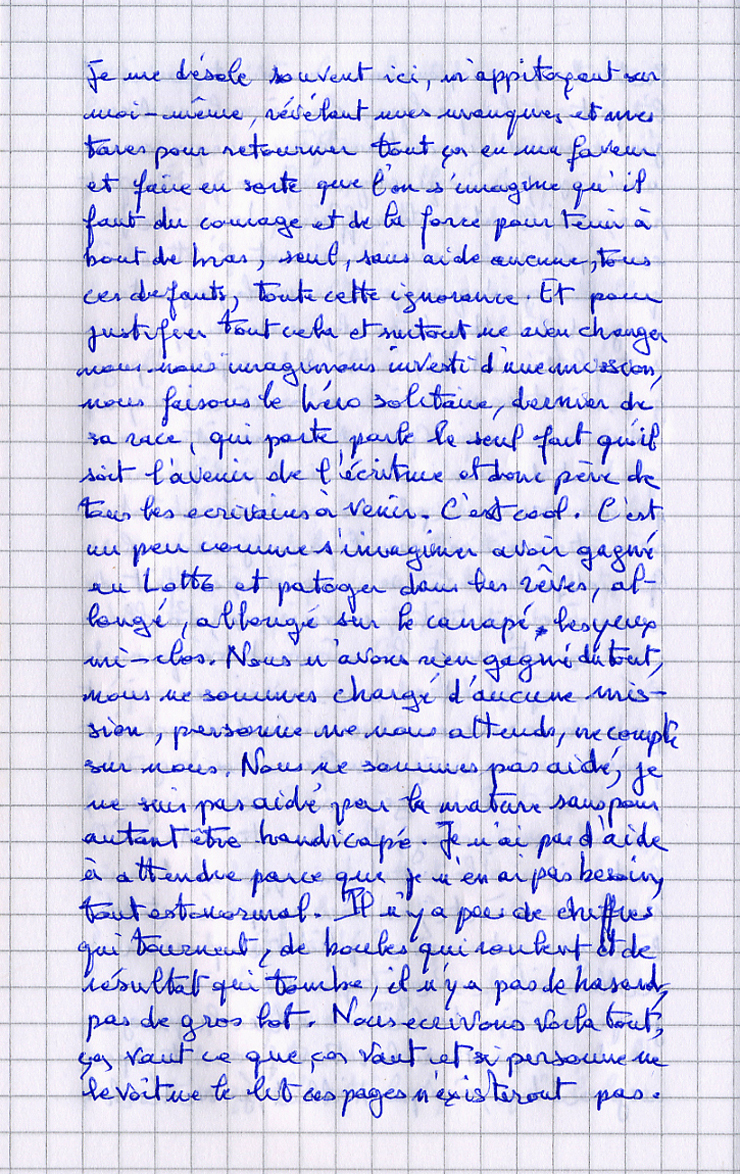 Je me désole souvent ici, m'appitoyant sur
moi-même, révélant mes manques et mes
tares pour retourner tout ça en ma faveur
et faire en sorte que l'on s'imagine qu'il
faut du courage et de la force pour tenir à
bout de bras, seul, sans aide aucune, tous
ces défauts, toute cette ignorance. Et pour
justifier tout cela et surtout ne rien changer
nous nous imaginons investi d'une mission,
nous faisons le héro solitaire, dernier de
sa race, qui porte parle le seul fait qu'il
soit l'avenir de l'écriture et donc père de
tous les ecrivains à venir. C'est cool. C'est
un peu comme s'imaginer avoir gagné
au Lotto et patoger dans les rêves, al-
longé, allongé sur le canapé, les yeux
mi-clos. Nous n'avons rien gagné du tout,
nous ne sommes chargé d'aucune mis-
sion, personne ne nous attends, ne compte
sur nous. Nous ne sommes pas aidé, je
ne suis pas aidé par la nature sans pour
autant être handicapé. Je n'ai pas d'aide
à attendre parce que je n'en ai pas besoin,
tout est normal. Il n'y a pas de chiffres
qui tournent, de boules qui roulent et de
résultat qui tombe, il n'y a pas de hasard,
pas de gros lot. Nous ecrivons voila tout,
ça vaut ce que ça vaut et si personne ne
le voit ne le lit ces pages n'existeront pas.